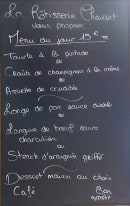 La Rôtisserie
vous propose
Menu du jour 15€
Tourte à la
ou
Croûte de champignons à la crème
ou
Assiette de crudités
Longe de porc sauce diable
ou
Langue de bœuf sauce
charcutière
ou
Steack d'araignée poêlé
Dessert maison au choix
Café Bon
appétit